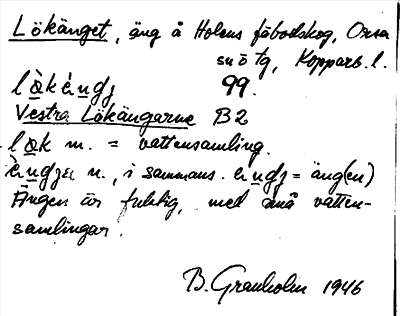 Lökänget, äng å Holens fäbodskog, Orsa
snö tg, Kopparb. l.
99.
Vestra Lökängarne B2
m. = vattensamling.
n., i sammans. = äng(en)
Ängen är fuktig, med små vatten-
samlingar.
B. Granholm 1946